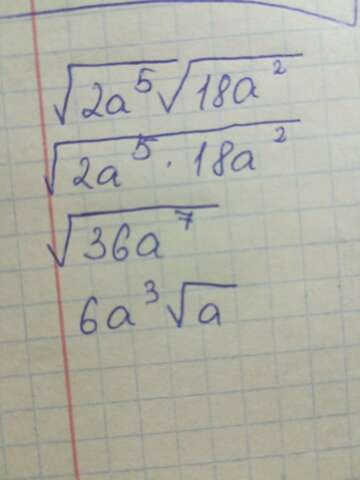 √2a⁵ √18a²
√2a⁵ · 18a²
√36a⁷
6a³√a